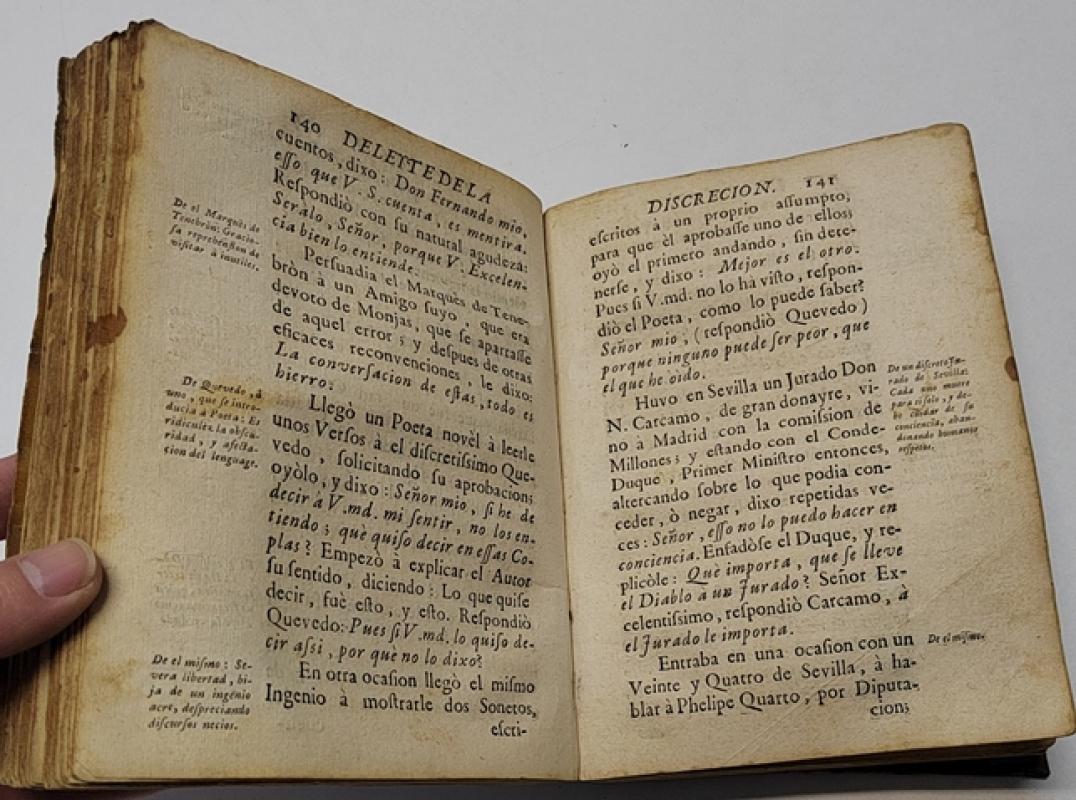 140 DELEITE DE LA
cuentos, dixo: Don Fernando mio,
eſſo que V. S. cuenta, es mentira.
Reſpondiò con ſu natural agudeza:
Seràlo, Señor, porque V. Excelen-
cia bien lo entiende.
Perſuadia el Marquès de Tene-
bròn à un Amigo ſuyo, que era
devoto de Monjas, que ſe apartaſſe
de aquel error; y deſpues de otras
eficaces reconvenciones, le dixo:
La converſacion de eſtas, todo es
hierro.
Llegò un Poeta novèl à leerle
unos Verſos à el diſcretiſsimo Que-
vedo, ſolicitando ſu aprobacion;
oyòlo, y dixo: Señor mio, ſi he de
decir à V.md. mi ſentir, no los en-
tiendo; què quiſo decir en eſſas Co-
plas? Empezò à explicar el Autor
ſu ſentido, diciendo: Lo que quiſe
decir, fuè eſto, y eſto. Reſpondiò
Quevedo: Pues ſi V.md. lo quiſo de-
cir aſsi, por què no lo dixo?
En otra ocaſion llegò el miſmo
Ingenio à moſtrarle dos Sonetos,
eſcri-
De el Marquès de
Tenebròn: Gracio-
ſa reprehenſion de
viſitar à inutiles.
De Quevedo, à
uno, que ſe intro-
ducia à Poeta: Es
ridiculèz la obſcu-
ridad, y afecta-
cion del lenguage.
De el miſmo: Se-
vera libertad, hi-
ja de un ingenio
acre, deſpreciando
diſcurſos necios.
DISCRECION. 141
eſcritos à un proprio aſſumpto;
para que èl aprobaſſe uno de ellos;
oyò el primero andando, ſin dete-
nerſe, y dixo: Mejor es el otro.
Pues ſi V.md. no lo hà viſto, reſpon-
diò el Poeta, como lo puede ſaber?
Señor mio, (reſpondiò Quevedo)
porque ninguno puede ſer peor, que
el que he oido.
Huvo en Sevilla un Jurado Don
N. Carcamo, de gran donayre, vi-
no à Madrid con la comiſsion de
Millones; y eſtando con el Conde-
Duque, Primer Miniſtro entonces,
altercando ſobre lo que podia con-
ceder, ò negar, dixo repetidas ve-
ces: Señor, eſſo no lo puedo hacer en
conciencia. Enfadòſe el Duque, y re-
plicòle: Què importa, que ſe lleve
el Diablo à un Jurado? Señor Ex-
celentiſsimo, reſpondiò Carcamo, à
el Jurado le importa.
Entraba en una ocaſion con un
Veinte y Quatro de Sevilla, à ha-
blar à Phelipe Quarto, por Diputa-
cion;
De un diſcreto Ju-
rado de Sevilla:
Cada uno muere
para sì ſolo, y de-
be cuidar de ſu
conciencia, aban-
donando humanos
reſpetos.
De el miſmo.